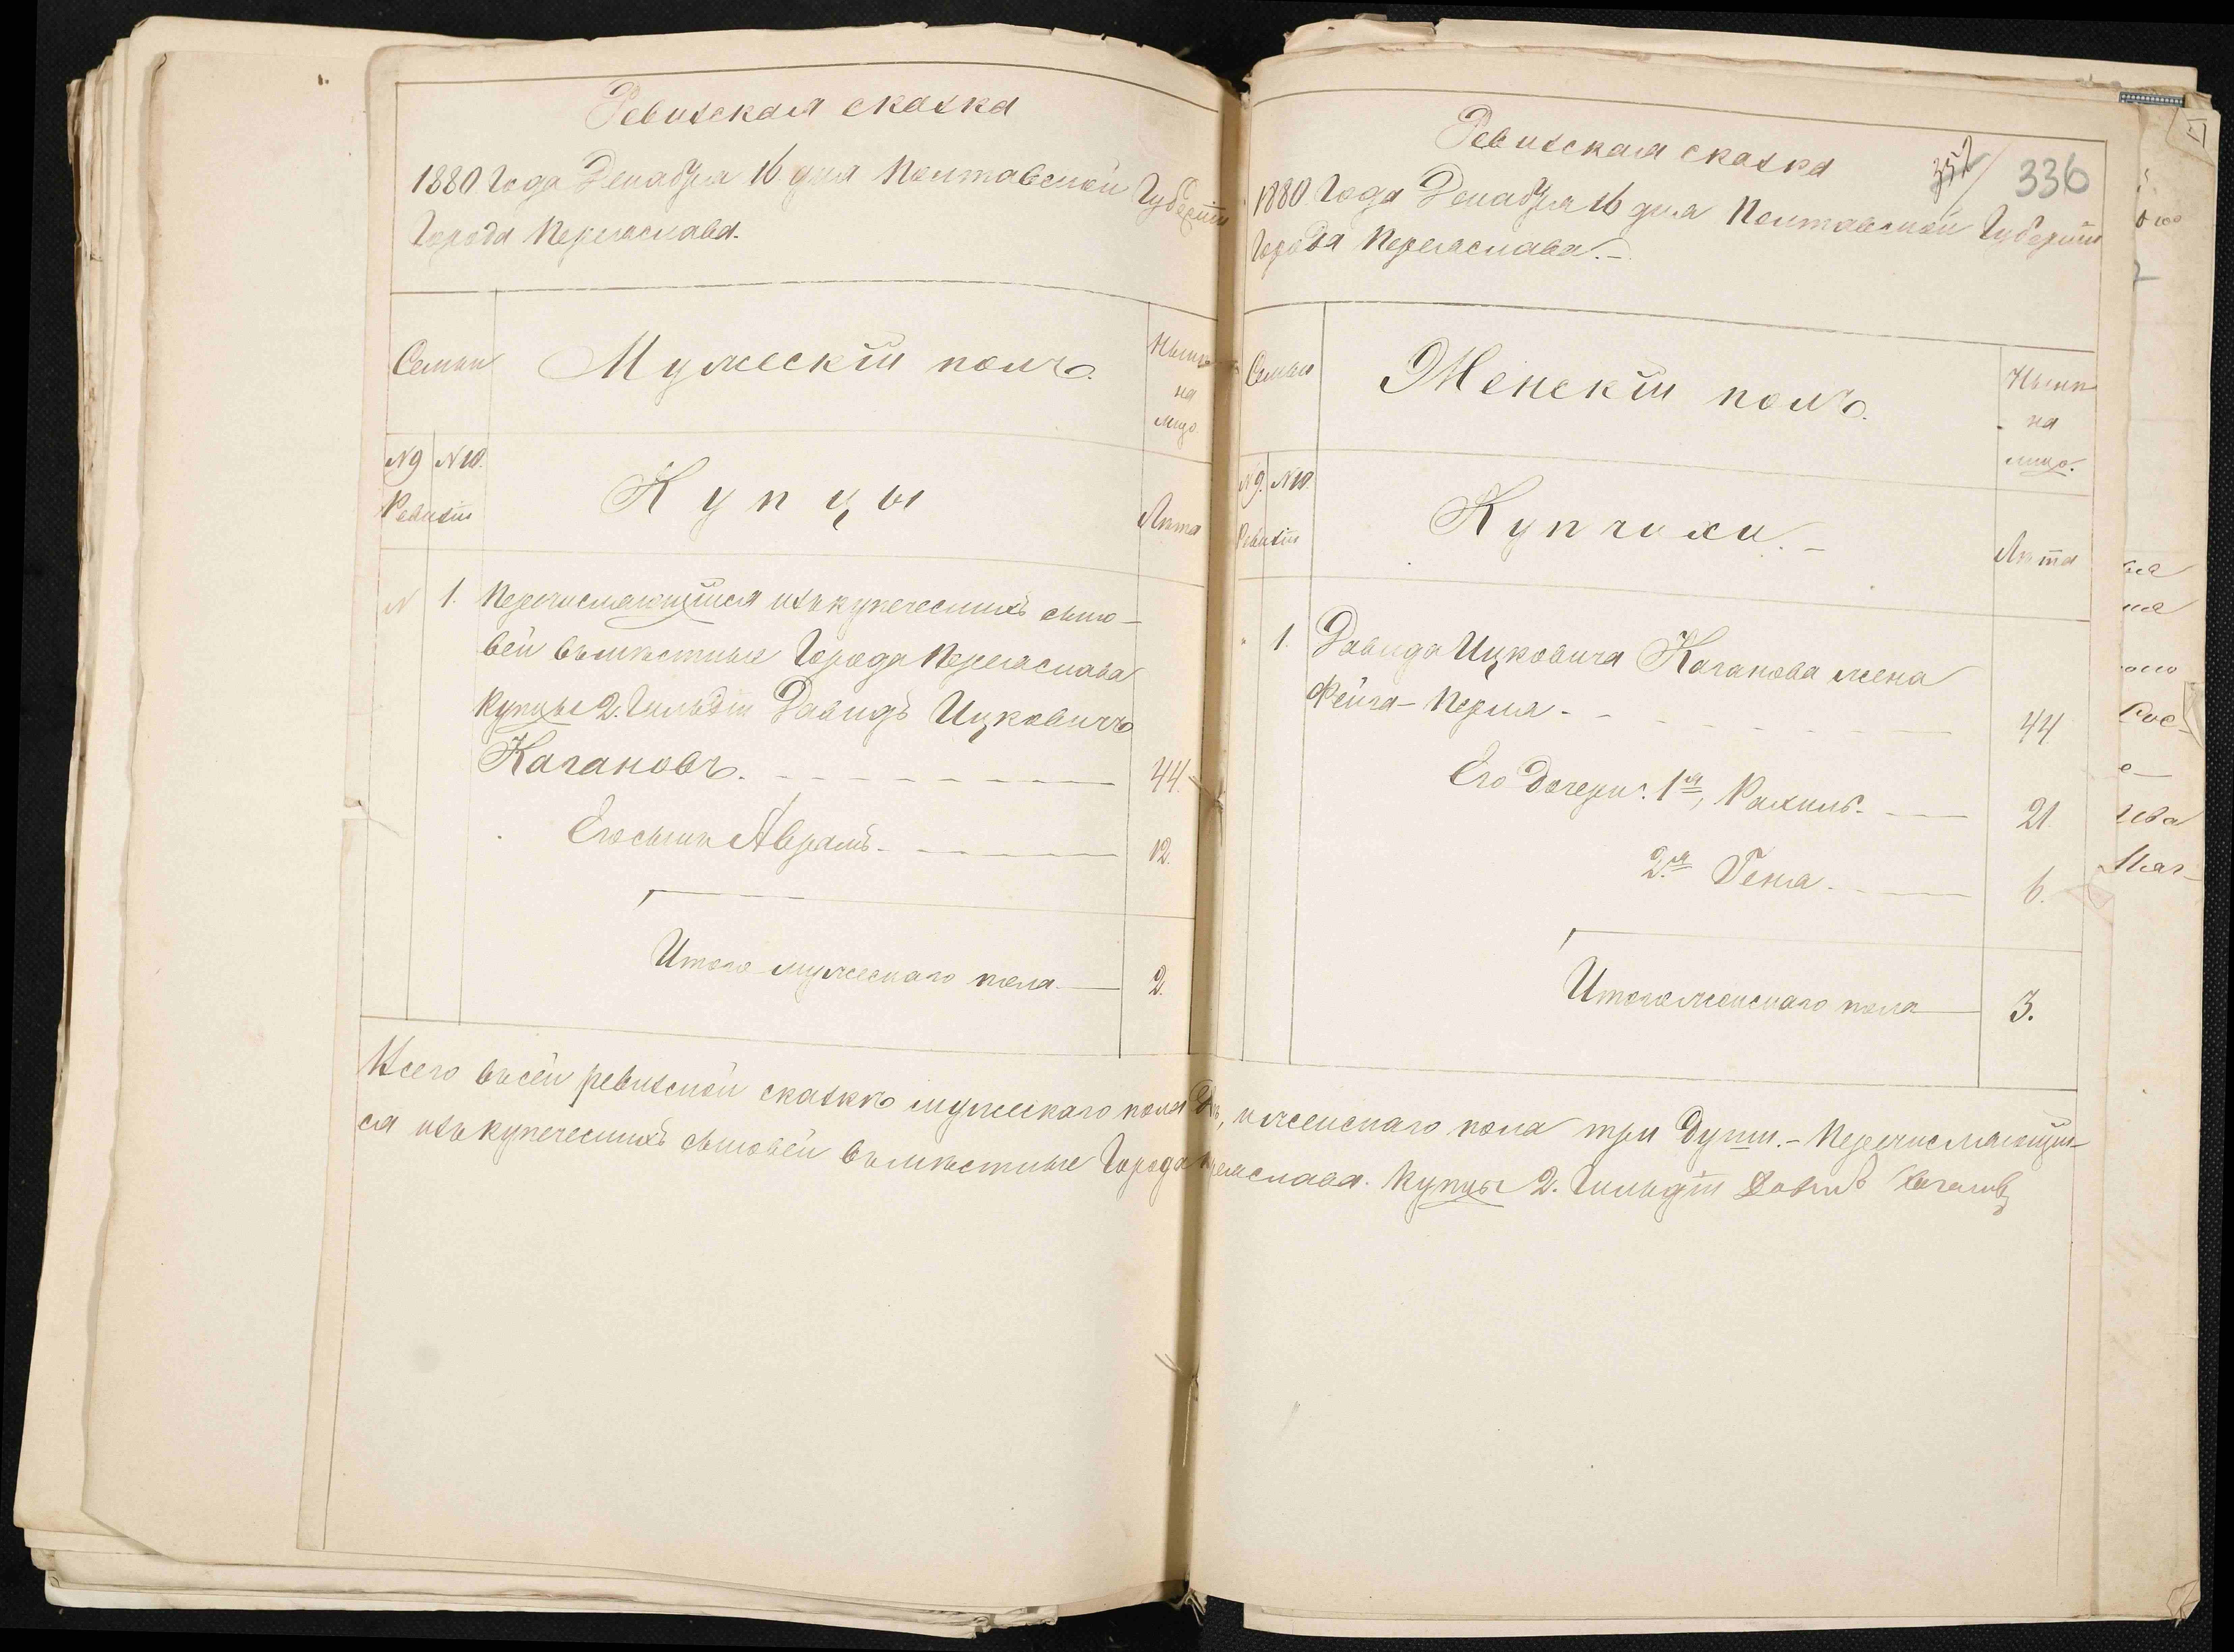 Ревизская сказка
1880 Года Декабря 16 дня Полтавской Губерніи
Города Переяслава.
Семьи
Мужескій полъ.
Нынѣ
на
лицо
N 9 N 10.
Ревизіи
Купцы
Лѣта
N 1. Перечисляющійся изъ купеческихъ сыно-
вей въ мѣстные Города Переяслава
Купцы 2. Гильдіи Давидъ Ицковичъ
Кагановъ. 44.
Его сынъ Аврамъ. 12.
Итого мужескаго пола 2.
Ревизская сказка
352 336
1880 Года Декабря 16 дня Полтавской Губерніи
Города Переяслава.
Семьи
Женскій полъ.
Нынѣ
на
лицо.
N 9. N 10.
Ревизіи
Купчихи.
Лѣта
1. Давида Ицковича Каганова жена
Фейга-Перля 44
Его дочери: 1я, Рахиль. 21
2я Геня. 6.
Итого женскаго пола 3.
Всего въ сей ревизской сказкѣ мужескаго пола двѣ, и женскаго пола три души. Перечисляющій-
ся изъ купеческихъ сыновей въ мѣстные Города Переяслава. Купцы 2. Гильдіи Давидъ Кагановъ